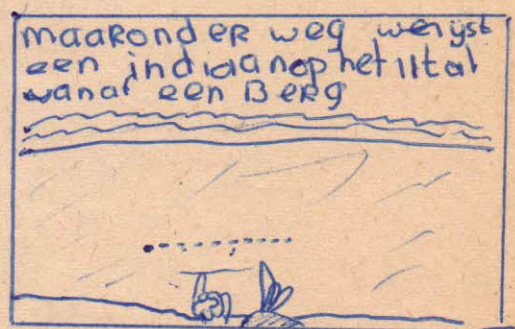 maaRond eR weg werijst
een indiaan op het IItal
vanaf een BeRg